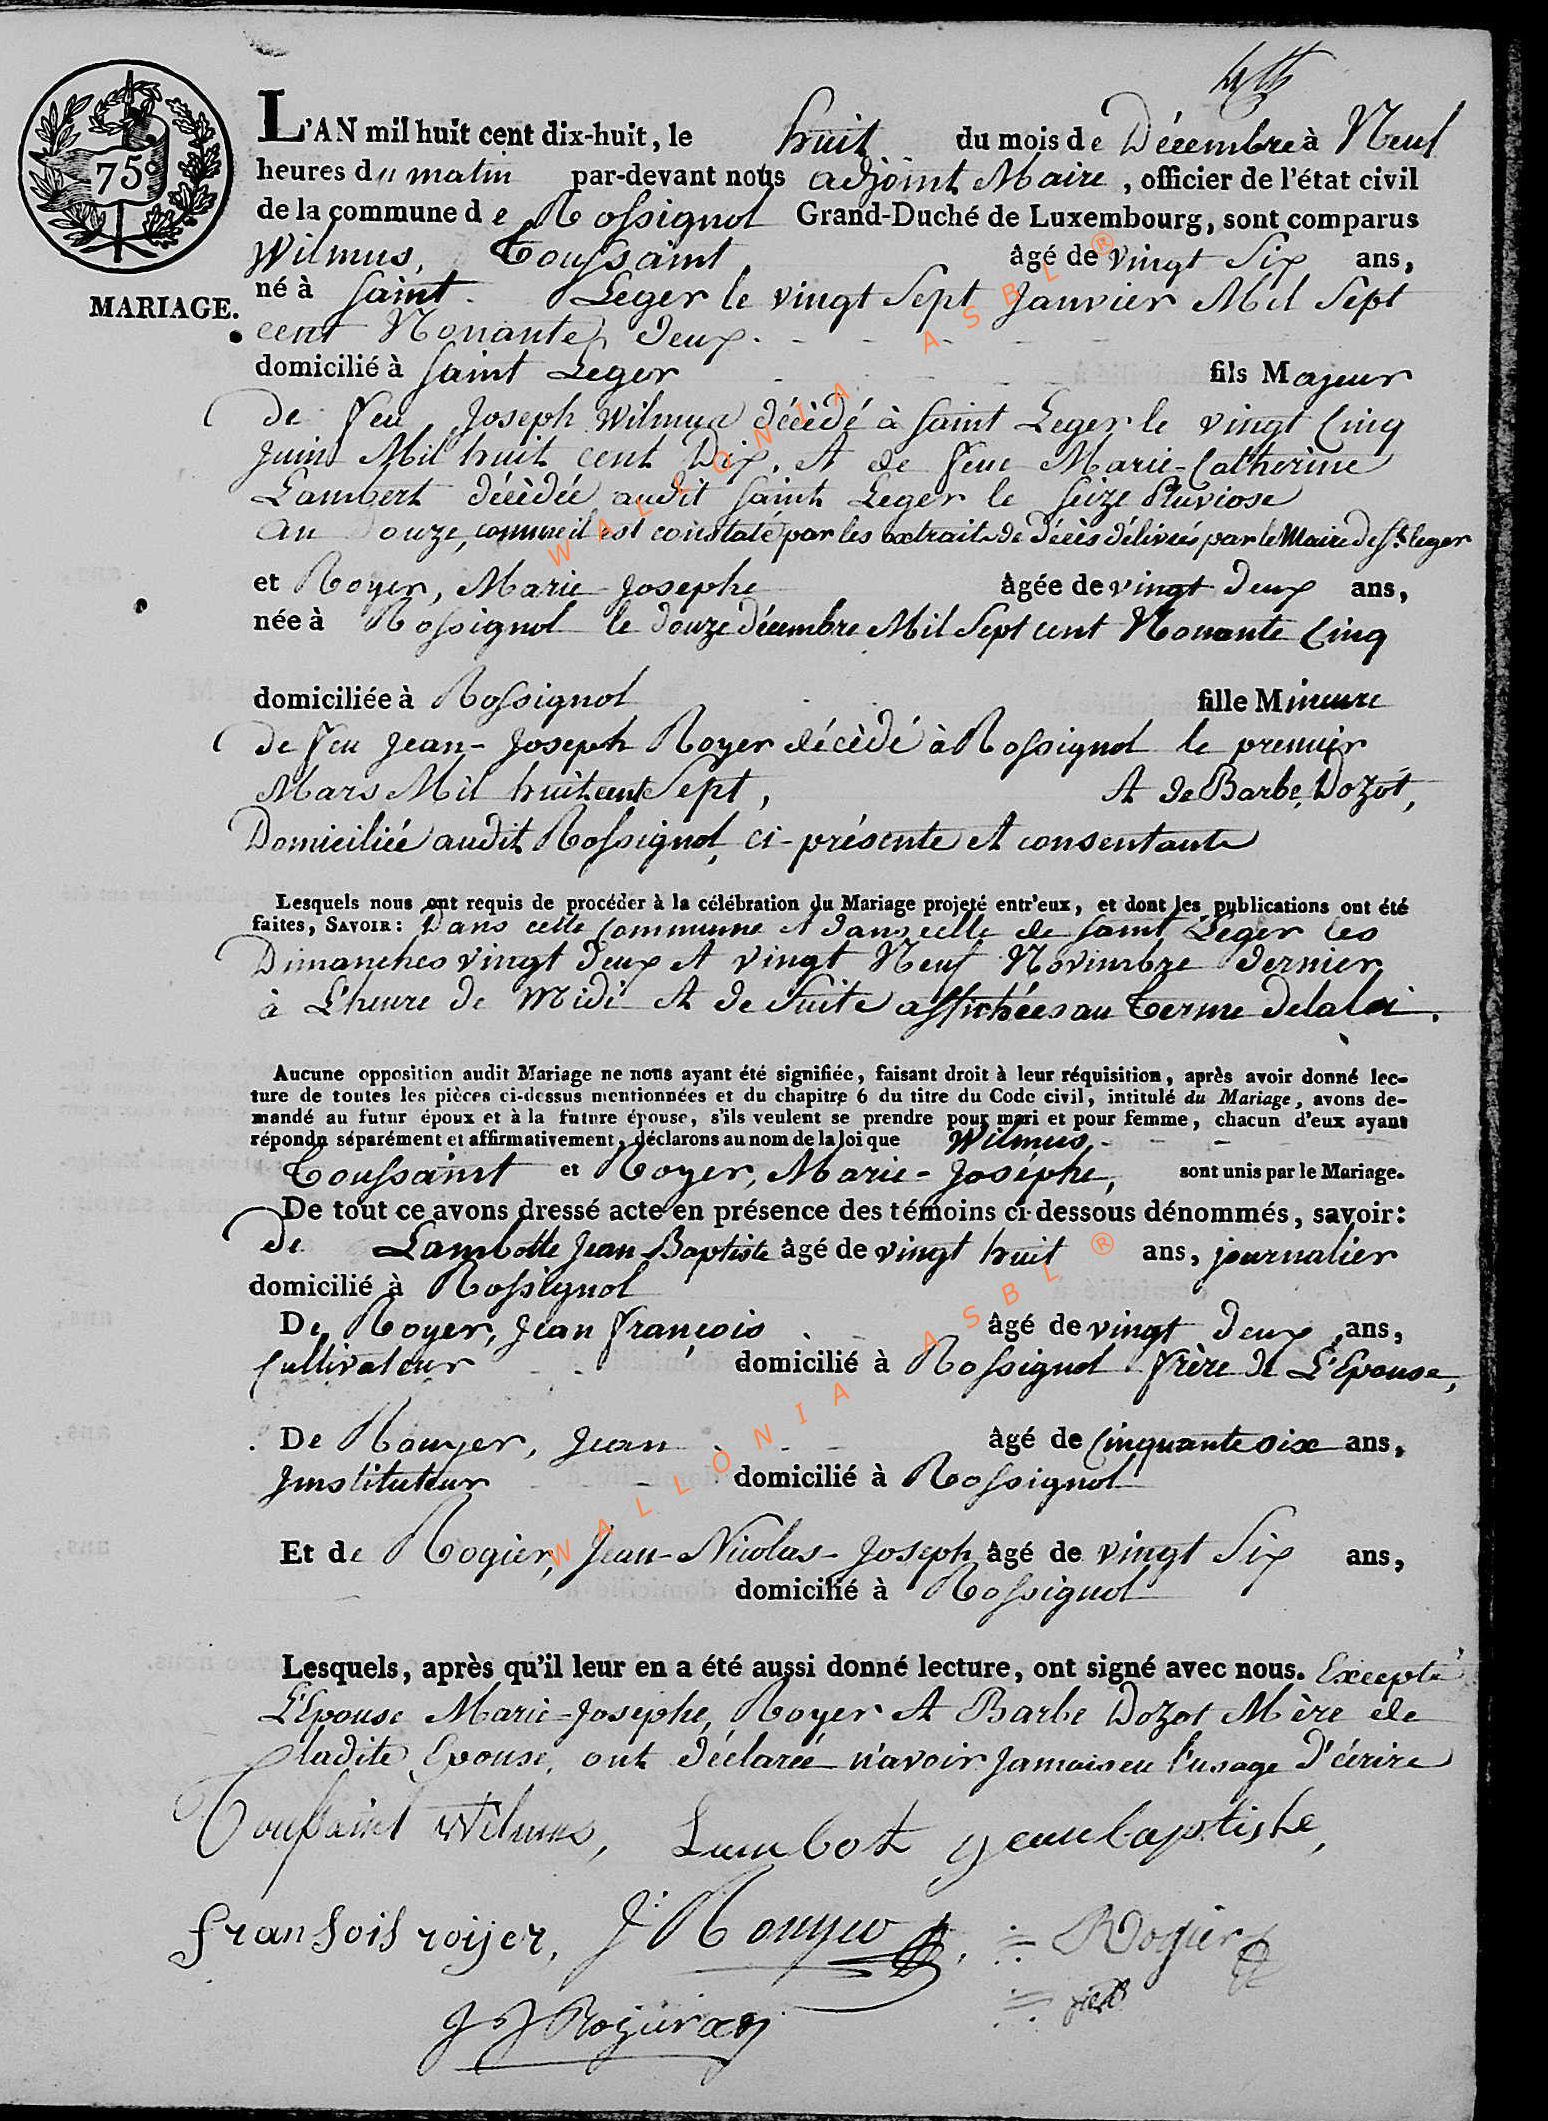 75c
MARIAGE.
L'AN mil huit cent dix-huit, le huit du mois de Décembre à Neuf
heures du matin par-devant nous adjoint Maire, officier de l'état civil
de la commune de Rossignol Grand-Duché de Luxembourg, sont comparus
Wilmus, Toussaint âgé de vingt Six ans,
né à Saint Leger le vingt Sept Janvier Mil Sept
cent Nonante deux.
domicilié à Saint Leger fils Majeur
de feu Joseph Wilmus décédé à Saint Leger le vingt Cinq
Juin Mil huit cent Dix, et de feue Marie-Catherine
Lambert décédée audit Saint Leger le Seize Pluviose
an Douze, comme il est constaté par les extraits de décès délivrés par le Maire de St. leger
et Royer, Marie Josephe âgée de vingt deux ans,
née à Rossignol le douze décembre Mil Sept cent Nonante Cinq
domiciliée à Rossignol fille Mineure
de feu Jean-Joseph Royer décèdé à Rossignol le premier
Mars Mil huit cent Sept, et de Barbe Dozot,
Domiciliée audit Rossignol, ci-présente et consentante
Lesquels nous ont requis de procéder à la célébration du Mariage projeté entr'eux, et dont les publications ont été
faites, SAVOIR: Dans cette Commune et dans celle de Saint Leger les
Dimanches vingt deux et vingt Neuf Novembre dernier
à L'heure de Midi et de Suite affichées au terme de la loi.
Aucune opposition audit Mariage ne nous ayant été signifiée, faisant droit à leur réquisition, après avoir donné lec-
ture de toutes les pièces ci-dessus mentionnées et du chapitre 6 du titre du Code civil, intitulé du Mariage, avons de-
mandé au futur époux et à la future épouse, s'ils veulent se prendre pour mari et pour femme, chacun d'eux ayant
répondu séparément et affirmativement, déclarons au nom de la loi que Wilmus,
Toussaint et Royer, Marie-Joséphe, sont unis par le Mariage.
De tout ce avons dressé acte en présence des témoins ci-dessous dénommés, savoir:
De Lambotte Jean Baptiste âgé de vingt huit ans, journalier
domicilié à Rossignol
De Royer, Jean François âgé de vingt deux ans,
Cultivateur domicilié à Rossignol frère de L'Epouse,
De Rouyer, Jean âgé de Cinquante six ans,
Instituteur domicilié à Rossignol
Et de Rogier, Jean-Nicolas-Joseph âgé de vingt Six ans,
domicilié à Rossignol
Lesquels, après qu'il leur en a été aussi donné lecture, ont signé avec nous. Excepté
L'Epouse Marie-Josephe Royer et Barbe Dozot Mère de
ladite Epouse, ont déclarée n'avoir Jamais eu l'usage d'écrire
Toussaint Wilmus, Lambot jeanbaptiste,
fransois roijer, J. Rouyer Rogier
J J Rogier adj
WALLONIA ASBL ®
WALLONIA ASBL ®